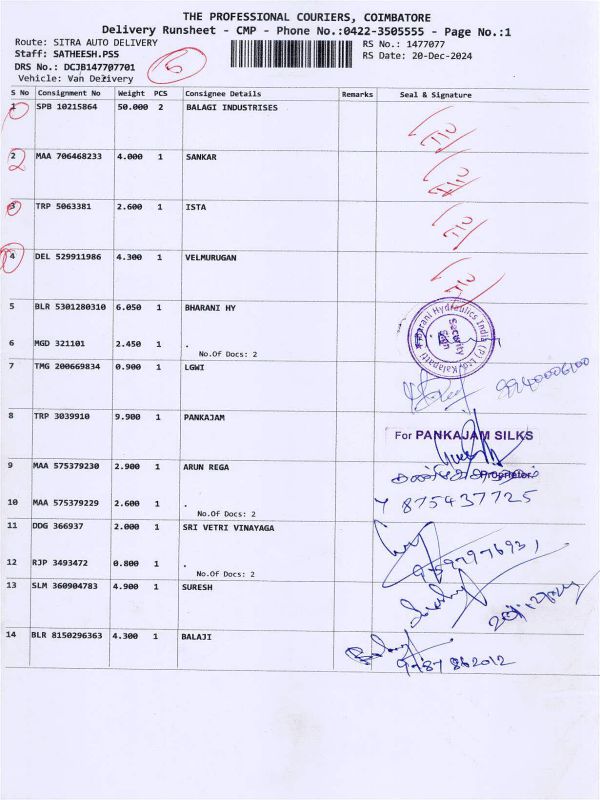 THE PROFESSIONAL COURIERS, COIMBATORE
Delivery Runsheet - CMP - Phone No.:0422-3505555 - Page No.:1
Route: SITRA AUTO DELIVERY
RS No.: 1477077
Staff: SATHEESH.PSS
RS Date: 20-Dec-2024
DRS No.: DCJB147707701
Vehicle: Van Delivery
5
S No Consignment No Weight PCS Consignee Details Remarks Seal & Signature
1 SPB 10215864 50.000 2 BALAGI INDUSTRISES
2 MAA 706468233 4.000 1 SANKAR
2
3 TRP 5063381 2.600 1 ISTA
4 DEL 529911986 4.300 1 VELMURUGAN
5 BLR 5301280310 6.050 1 BHARANI HY
Bharani Hydraulics India (P) Ltd. Kalapatti
Security Sign
6 MGD 321101 2.450 1 .
No.Of Docs: 2
7 TMG 200669834 0.900 1 LGWI
8 TRP 3039910 9.900 1 PANKAJAM
For PANKAJAM SILKS
Proprietor.
9 MAA 575379230 2.900 1 ARUN REGA
10 MAA 575379229 2.600 1 .
875437725
No.Of Docs: 2
11 DDG 366937 2.000 1 SRI VETRI VINAYAGA
12 RJP 3493472 0.800 1 .
No.Of Docs: 2
13 SLM 360904783 4.900 1 SURESH
14 BLR 8150296363 4.300 1 BALAJI
9787862012